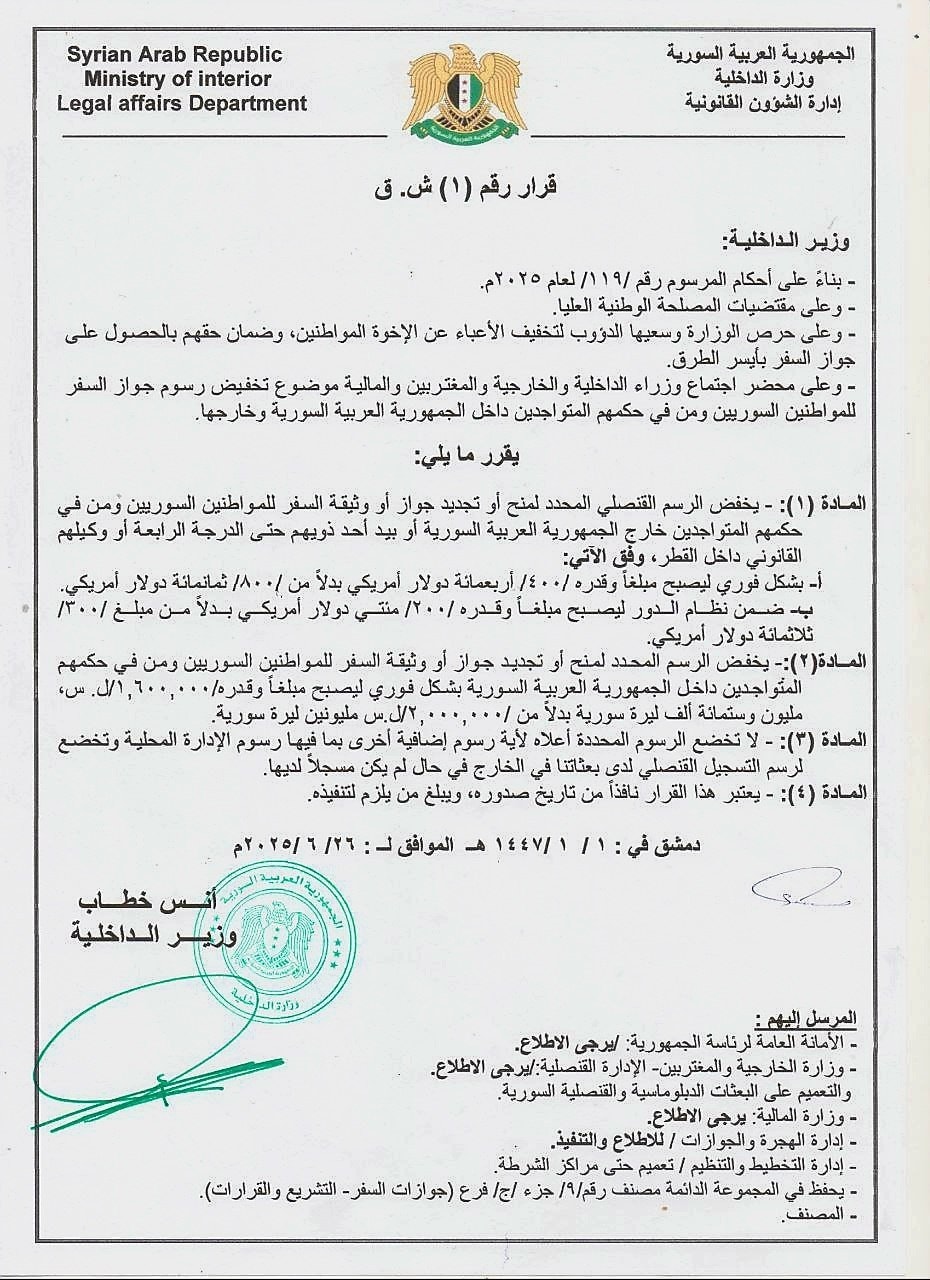 Syrian Arab Republic
Ministry of interior
Legal affairs Department
الجمهورية العربية السورية
وزارة الداخلية
إدارة الشؤون القانونية
الجمهورية العربية السورية
قرار رقم (١) ش. ق
وزير الداخلية:
- بناءً على أحكام المرسوم رقم /١١٩/ لعام ٢٠٢٥م.
- وعلى مقتضيات المصلحة الوطنية العليا.
- وعلى حرص الوزارة وسعيها الدؤوب لتخفيف الأعباء عن الإخوة المواطنين، وضمان حقهم بالحصول على
جواز السفر بأيسر الطرق.
- وعلى محضر اجتماع وزراء الداخلية والخارجية والمغتربين والمالية موضوع تخفيض رسوم جواز السفر
للمواطنين السوريين ومن في حكمهم المتواجدين داخل الجمهورية العربية السورية وخارجها.
يقرر ما يلي:
المادة (١): - يخفض الرسم القنصلي المحدد لمنح أو تجديد جواز أو وثيقة السفر للمواطنين السوريين ومن في
حكمهم المتواجدين خارج الجمهورية العربية السورية أو بيد أحد ذويهم حتى الدرجة الرابعة أو وكيلهم
القانوني داخل القطر، وفق الآتي:
أ- بشكل فوري ليصبح مبلغاً وقدره /٤٠٠/ أربعمائة دولار أمريكي بدلاً من /٨٠٠/ ثمانمائة دولار أمريكي.
ب- ضمن نظام الدور ليصبح مبلغاً وقدره /٢٠٠/ مئتي دولار أمريكي بدلاً من مبلغ /٣٠٠/
ثلاثمائة دولار أمريكي.
المادة(٢):- يخفض الرسم المحدد لمنح أو تجديد جواز أو وثيقة السفر للمواطنين السوريين ومن في حكمهم
المتواجدين داخل الجمهورية العربية السورية بشكل فوري ليصبح مبلغاً وقدره/١,٦٠٠,٠٠٠/ل. س،
مليون وستمائة ألف ليرة سورية بدلاً من /٢,٠٠٠,٠٠٠/ل.س مليونين ليرة سورية.
المادة (٣): - لا تخضع الرسوم المحددة أعلاه لأية رسوم إضافية أخرى بما فيها رسوم الإدارة المحلية وتخضع
لرسم التسجيل القنصلي لدى بعثاتنا في الخارج في حال لم يكن مسجلاً لديها.
المادة (٤): - يعتبر هذا القرار نافذاً من تاريخ صدوره، ويبلغ من يلزم لتنفيذه.
دمشق في : ١ / ١ /١٤٤٧ هـ الموافق لـ : ٢٦/ ٦ /٢٠٢٥م
أنس خطاب
وزير الداخلية
الجمهورية العربية السورية
وزارة الداخلية
المرسل إليهم :
- الأمانة العامة لرئاسة الجمهورية: /يرجى الاطلاع.
- وزارة الخارجية والمغتربين- الإدارة القنصلية:/يرجى الاطلاع.
والتعميم على البعثات الدبلوماسية والقنصلية السورية.
- وزارة المالية: يرجى الاطلاع.
- إدارة الهجرة والجوازات / للاطلاع والتنفيذ.
- إدارة التخطيط والتنظيم / تعميم حتى مراكز الشرطة.
- يحفظ في المجموعة الدائمة مصنف رقم/٩/ جزء /ج/ فرع (جوازات السفر- التشريع والقرارات).
- المصنف.